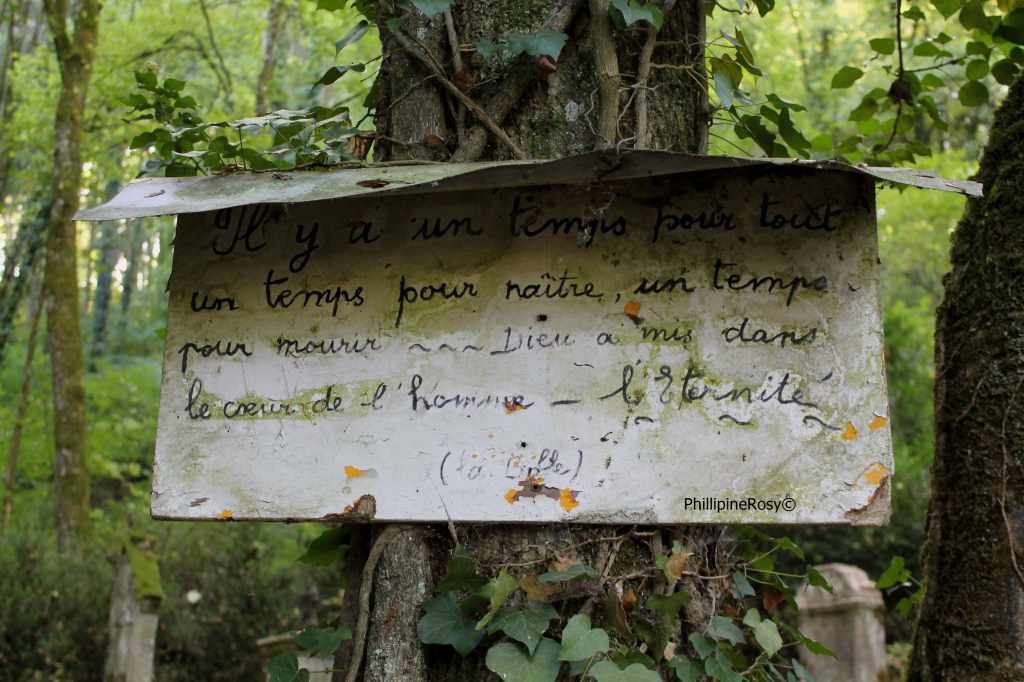 Il y a un temps pour tout
un temps pour naître, un temps
pour mourir ~~~ Dieu a mis dans
le cœur de l'homme – l'Eternité
(La Bible)
PhillipineRosy©